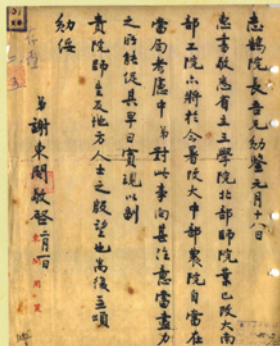 志鵠院長吾兄勛鑒元月十八日
惠書敬悉省立三學院北部師院業已改大南
部工院亦將於今暑改大中部農院自當在
當局考慮中弟對此事向甚注意當盡力
之所能促其早日實現以副
貴院師生及地方人士之殷望也耑復並頌
勛綏
弟謝東閔敬啓二月一日